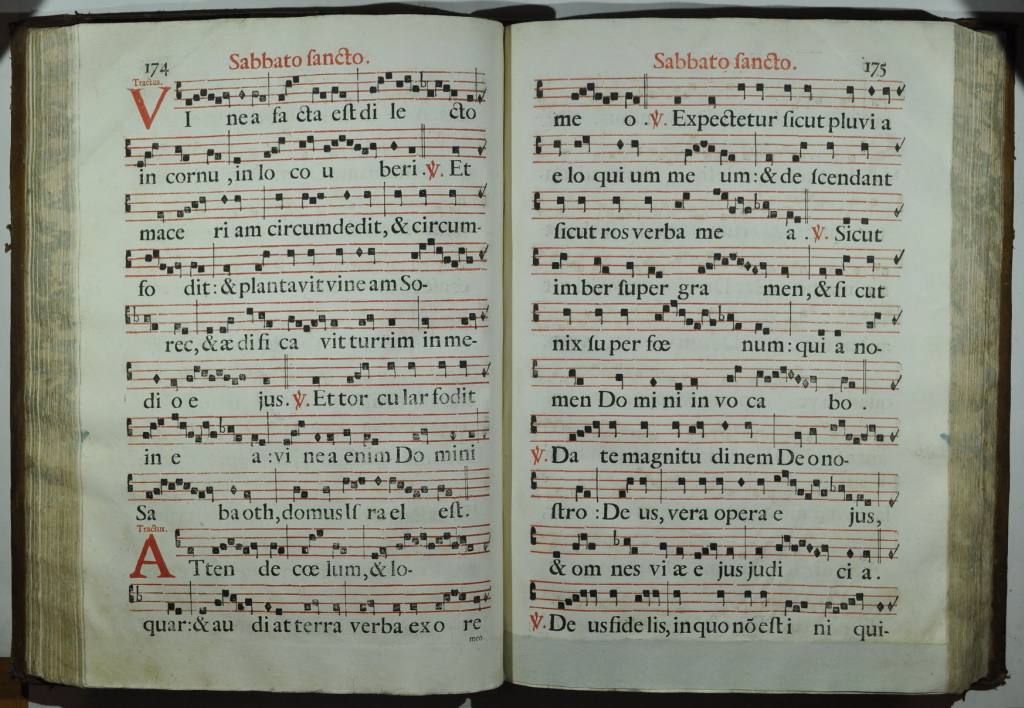 174
Sabbato sancto.
Tractus.
VI nea fa cta est di le cto
in cornu, in lo co u beri. ℣. Et
mace ri am circumdedit, & circum-
fo dit: & plantavit vineam So-
rec, & ædi fi ca vit turrim in me-
di o e jus. ℣. Et tor cu lar fodit
in e a: vi nea enim Do mini
Sa baoth, domus Is ra el est.
Tractus.
ATten de cœ lum, & lo-
quar: & au di at terra verba ex o re
meo.
Sabbato sancto.
175
me o. ℣. Expectetur sicut pluvi a
e lo qui um me um: & de scendant
sicut ros verba me a. ℣. Sicut
im ber super gra men, & si cut
nix su per fœ num: qui a no-
men Do mi ni in vo ca bo.
℣. Da te magnitu di nem Deo no-
stro: De us, vera opera e jus,
& om nes vi æ e jus judi ci a.
℣. De us fide lis, in quo nõ est i ni qui-